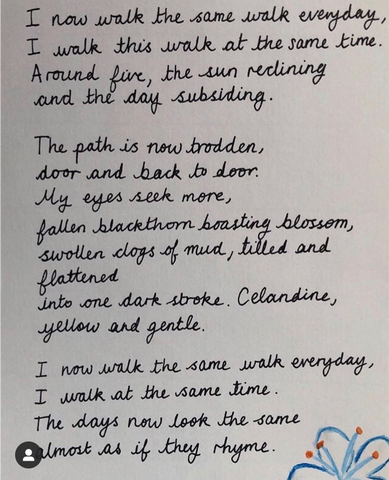 I now walk the same walk everyday,
I walk this walk at the same time.
Around five, the sun reclining
and the day subsiding.
The path is now trodden,
door and back to door.
My eyes seek more,
fallen blackthorn boasting blossom,
swollen clogs of mud, tilled and
flattened
into one dark stroke. Celandine,
yellow and gentle.
I now walk the same walk everyday,
I walk at the same time.
The days now look the same
almost as if they rhyme.